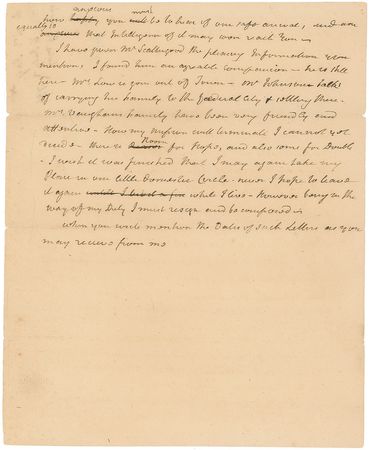 anxious must
how happy you will be to hear of our safe arrival, and am
equally so
anxious that Intelligence of it may soon reach You –
I have given Mr the pleasing Information you
mention, I found him an agreable companion – he is still
here – Mrs Low is gone out of Town – Mr Wharton talks
of carrying his Family to the Federal City & settling there –
Mr Vaughans Family have been very friendly and
attentive – How my Mission will terminate I cannot yet
decide – there is Reason Room for Hope, and also room for Doubt
I wish it was finished that I may again take my
Place in our little Domestic Circle – never I hope to leave
it again while I live – However being in the
way of my Duty I must resign and be composed –
When you write mention the Dates of such Letters as you
may recieve from me